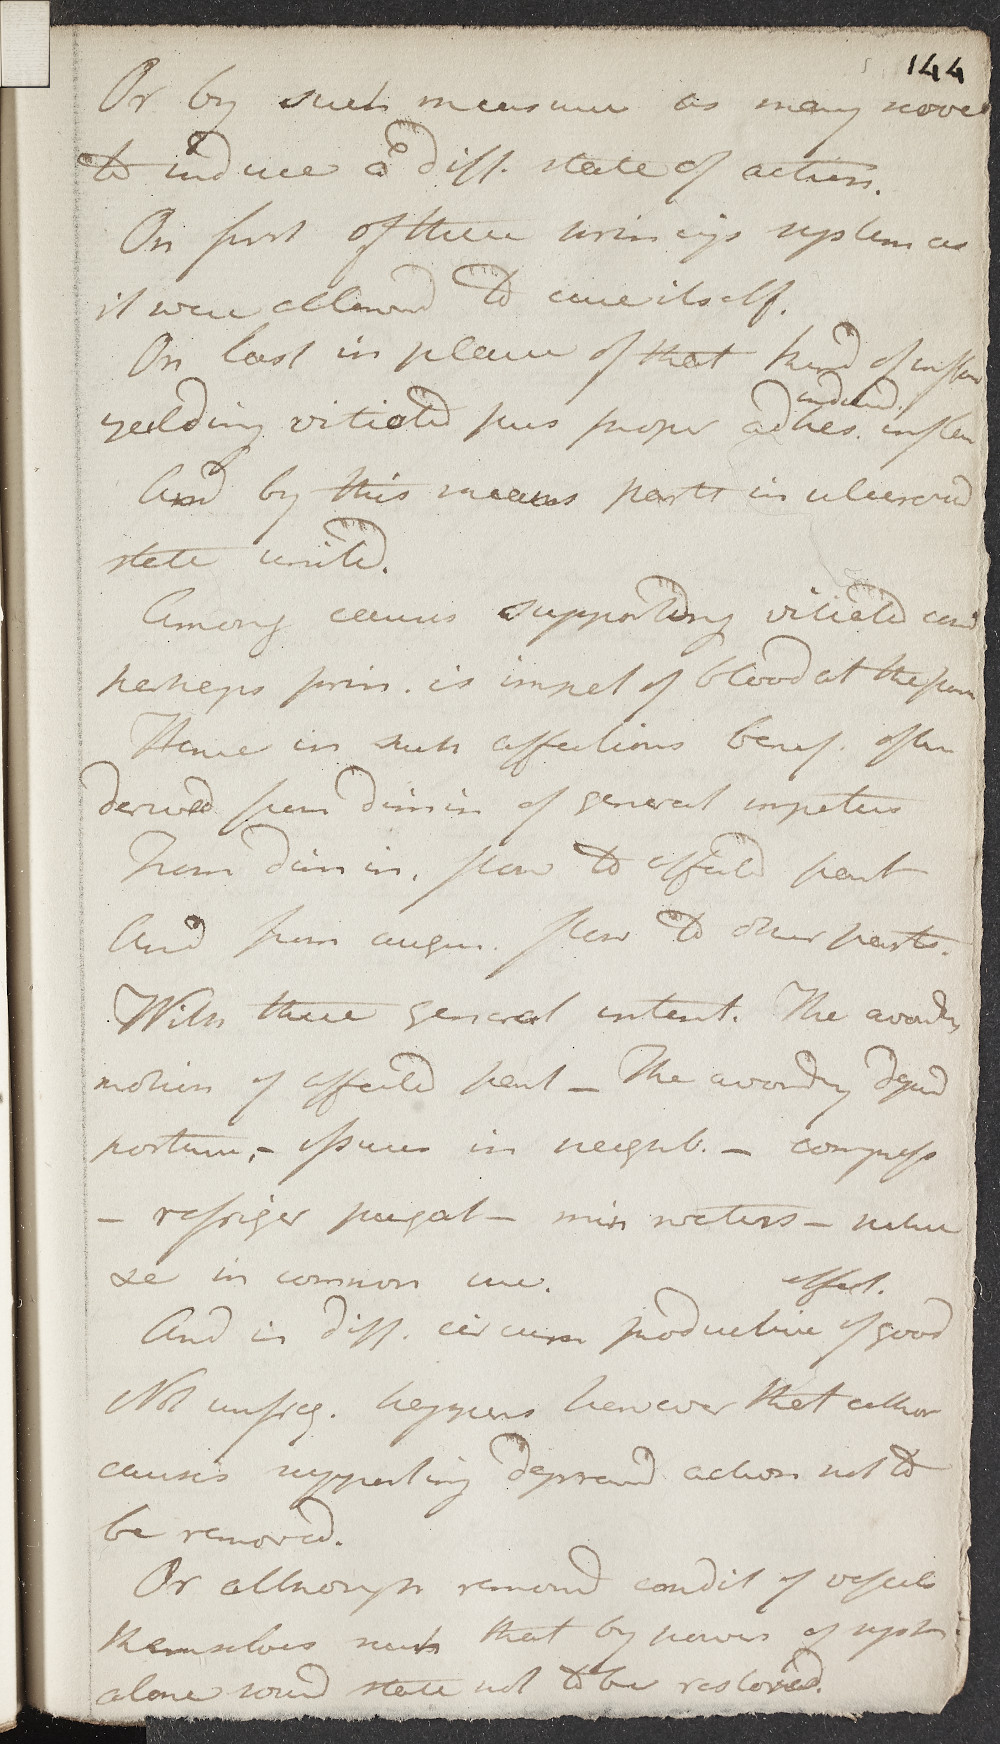 144
Or by such measure as may serve
to induce a diff. state of action.
On first of these princips system as
it were allowed to cure itself.
On last in place of that kind of inflam
induced.
yeelding vitiated pus proper adhes. inflam
And by this means parts in ulcerated
state united.
Among causes supporting vitiated cond
perhaps prin. is impet of blood at the part
Hence in such affections benef. often
derived from dimin of general impetus
From dimin. flow to affected part
And from augm. flow to other parts.
With these general intent. The avoiding
motion of affected part – The avoiding depend
posture, – issues in neighb. – compress
– refriger purgat – min waters – nitre
&c in common use.
effect.
And in diff. circum productive of good
Not unfreq. happens however that either
causes supporting depraved action not to
be removed.
Or although removed condit of vessels
themselves such that by power of syst.
alone sound state not to be restored.